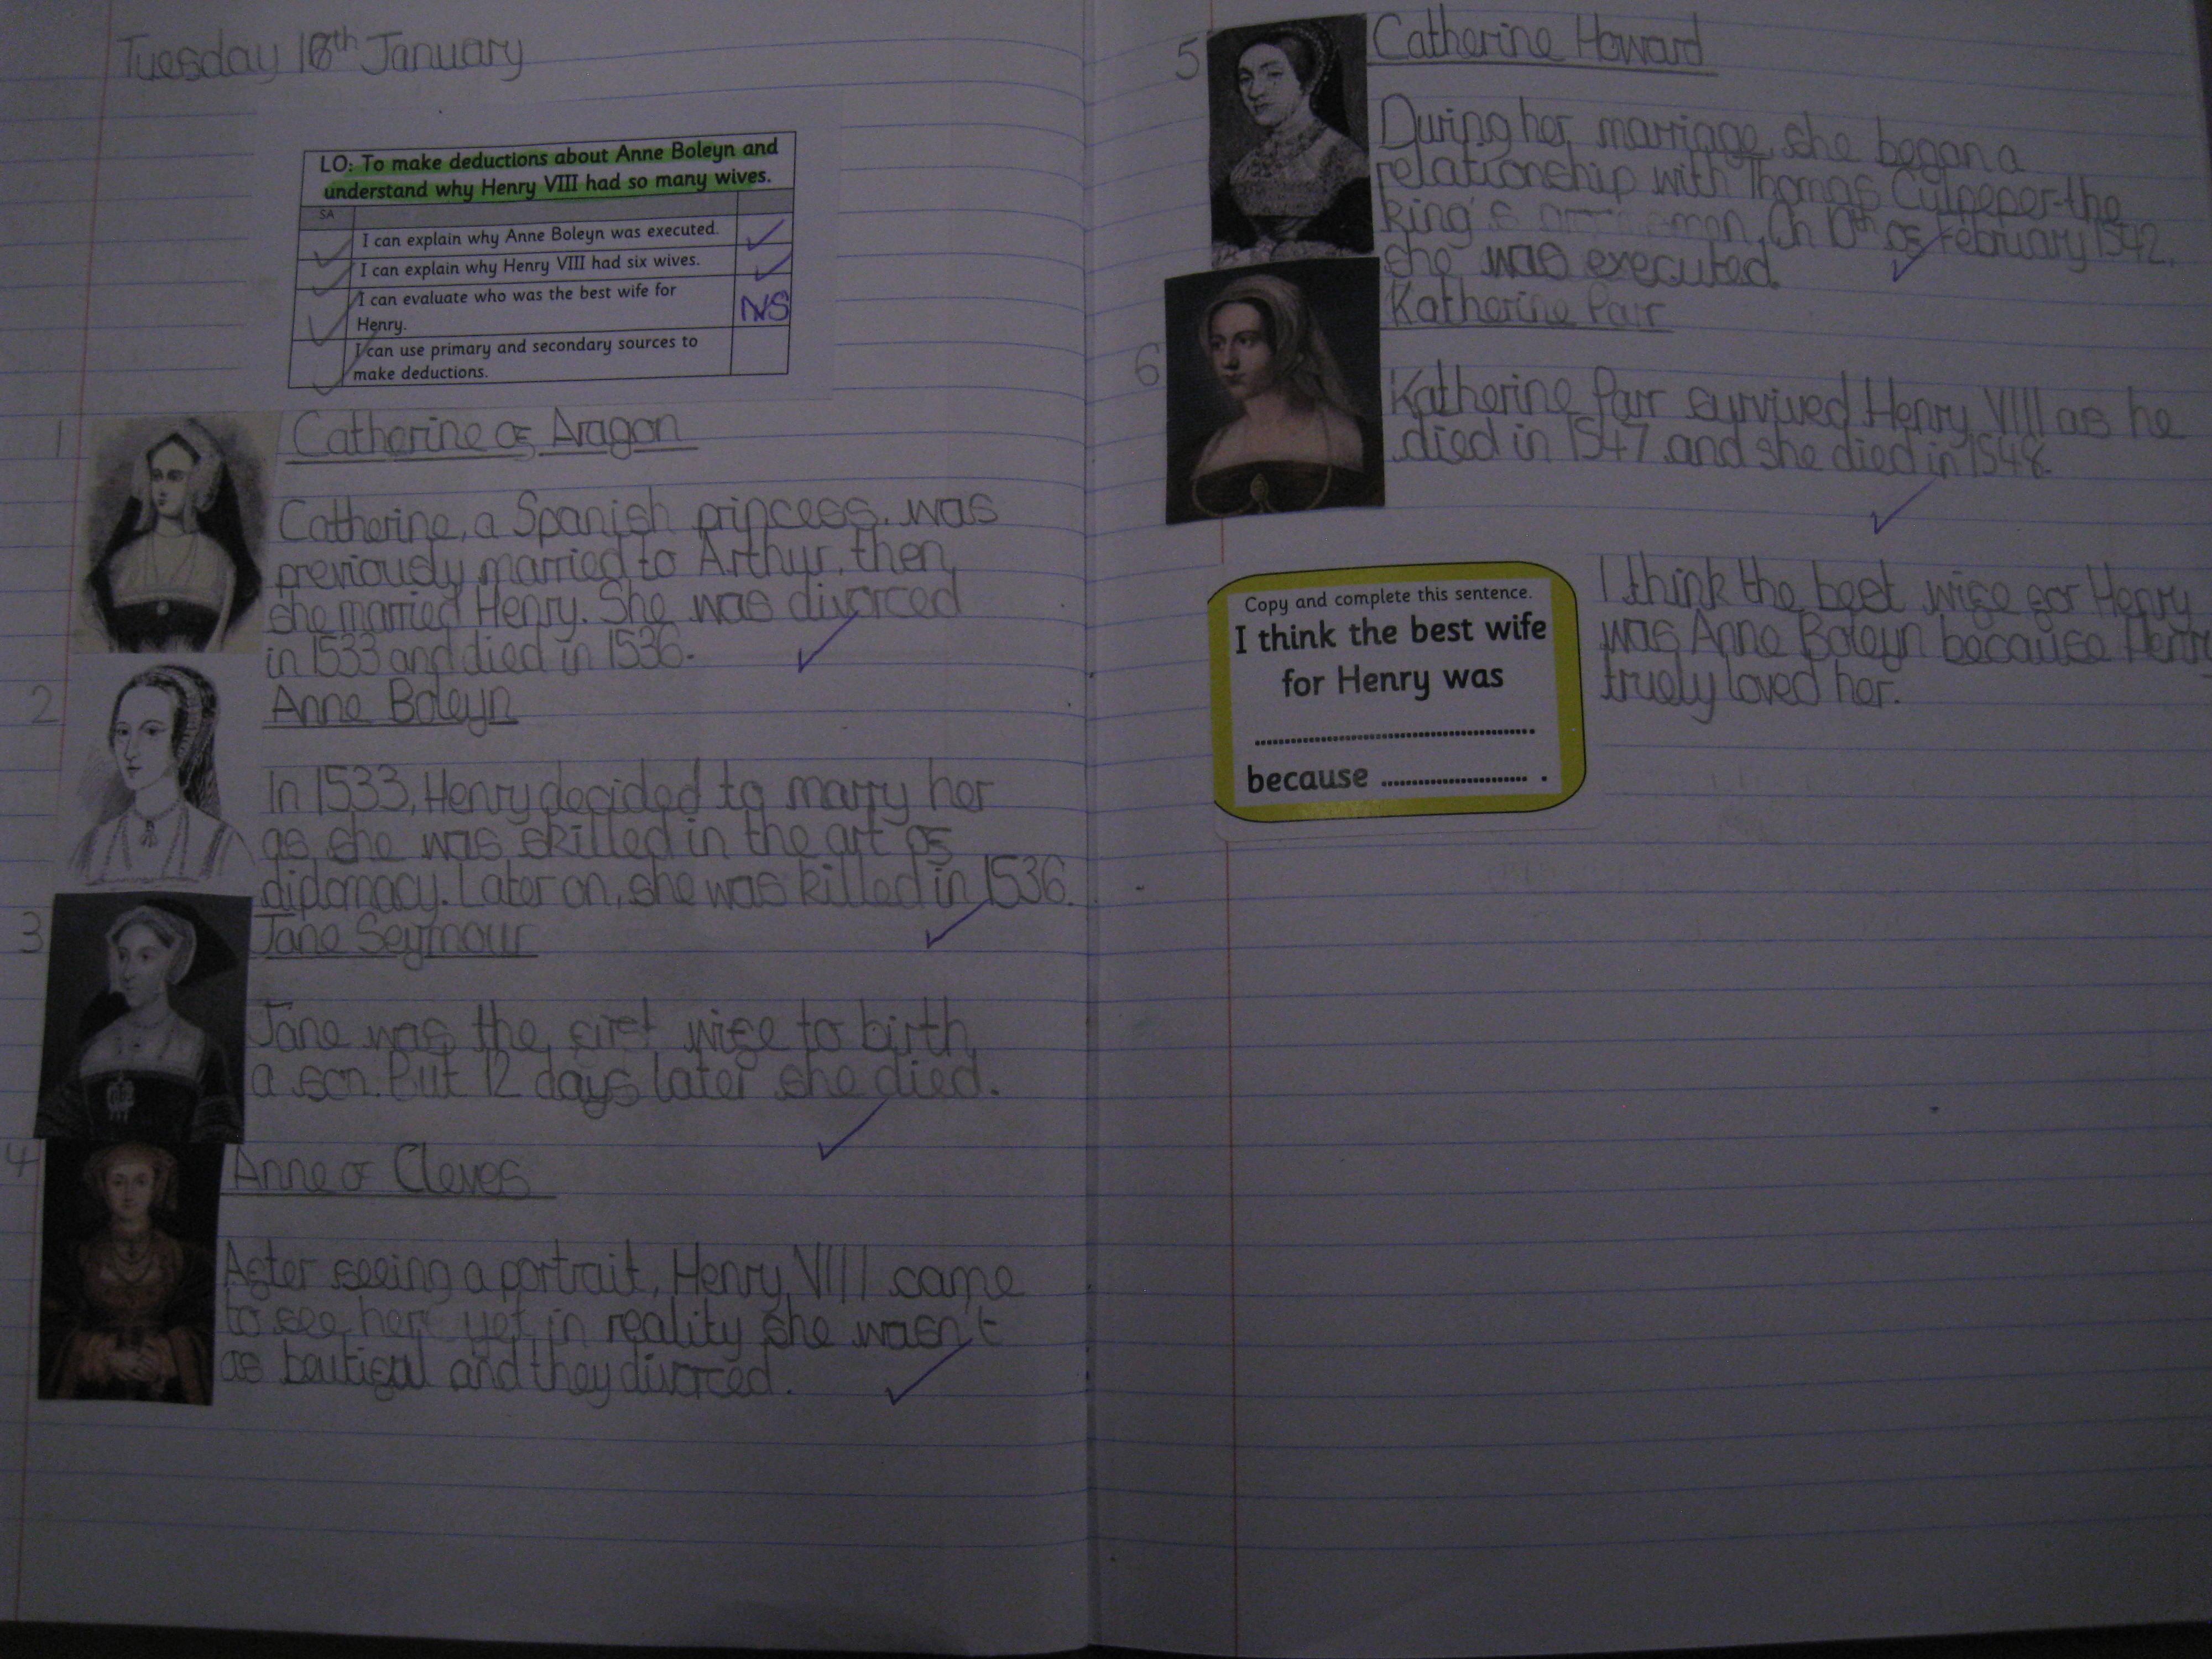 Tuesday 18th January
LO: To make deductions about Anne Boleyn and
understand why Henry VIII had so many wives.
SA
I can explain why Anne Boleyn was executed.
I can explain why Henry VIII had six wives.
I can evaluate who was the best wife for
Henry.
NS
I can use primary and secondary sources to
make deductions.
1
Catherine of Aragon
Catherine, a Spanish princess, was
previously married to Arthur, then
she married Henry. She was divorced
in 1533 and died in 1536.
2
Anne Boleyn
In 1533, Henry decided to marry her
as she was skilled in the art of
diplomacy. Later on, she was killed in 1536.
3
Jane Seymour
Jane was the first wife to birth
a son. But 12 days later she died.
4
Anne of Cleves
After seeing a portrait, Henry VIII came
to see her yet in reality she wasn't
as beutiful and they divorced.
5
Catherine Howard
During her marriage, she began a
relationship with Thomas Culpeper-the
king's On 13th of February 1542,
she was executed.
6
Katherine Parr
Katherine Parr survived Henry VIII as he
died in 1547 and she died in 1548.
Copy and complete this sentence.
I think the best wife
for Henry was
....................
because .................... .
I think the best wife for Henry
was Anne Boleyn because Henry
truely loved her.